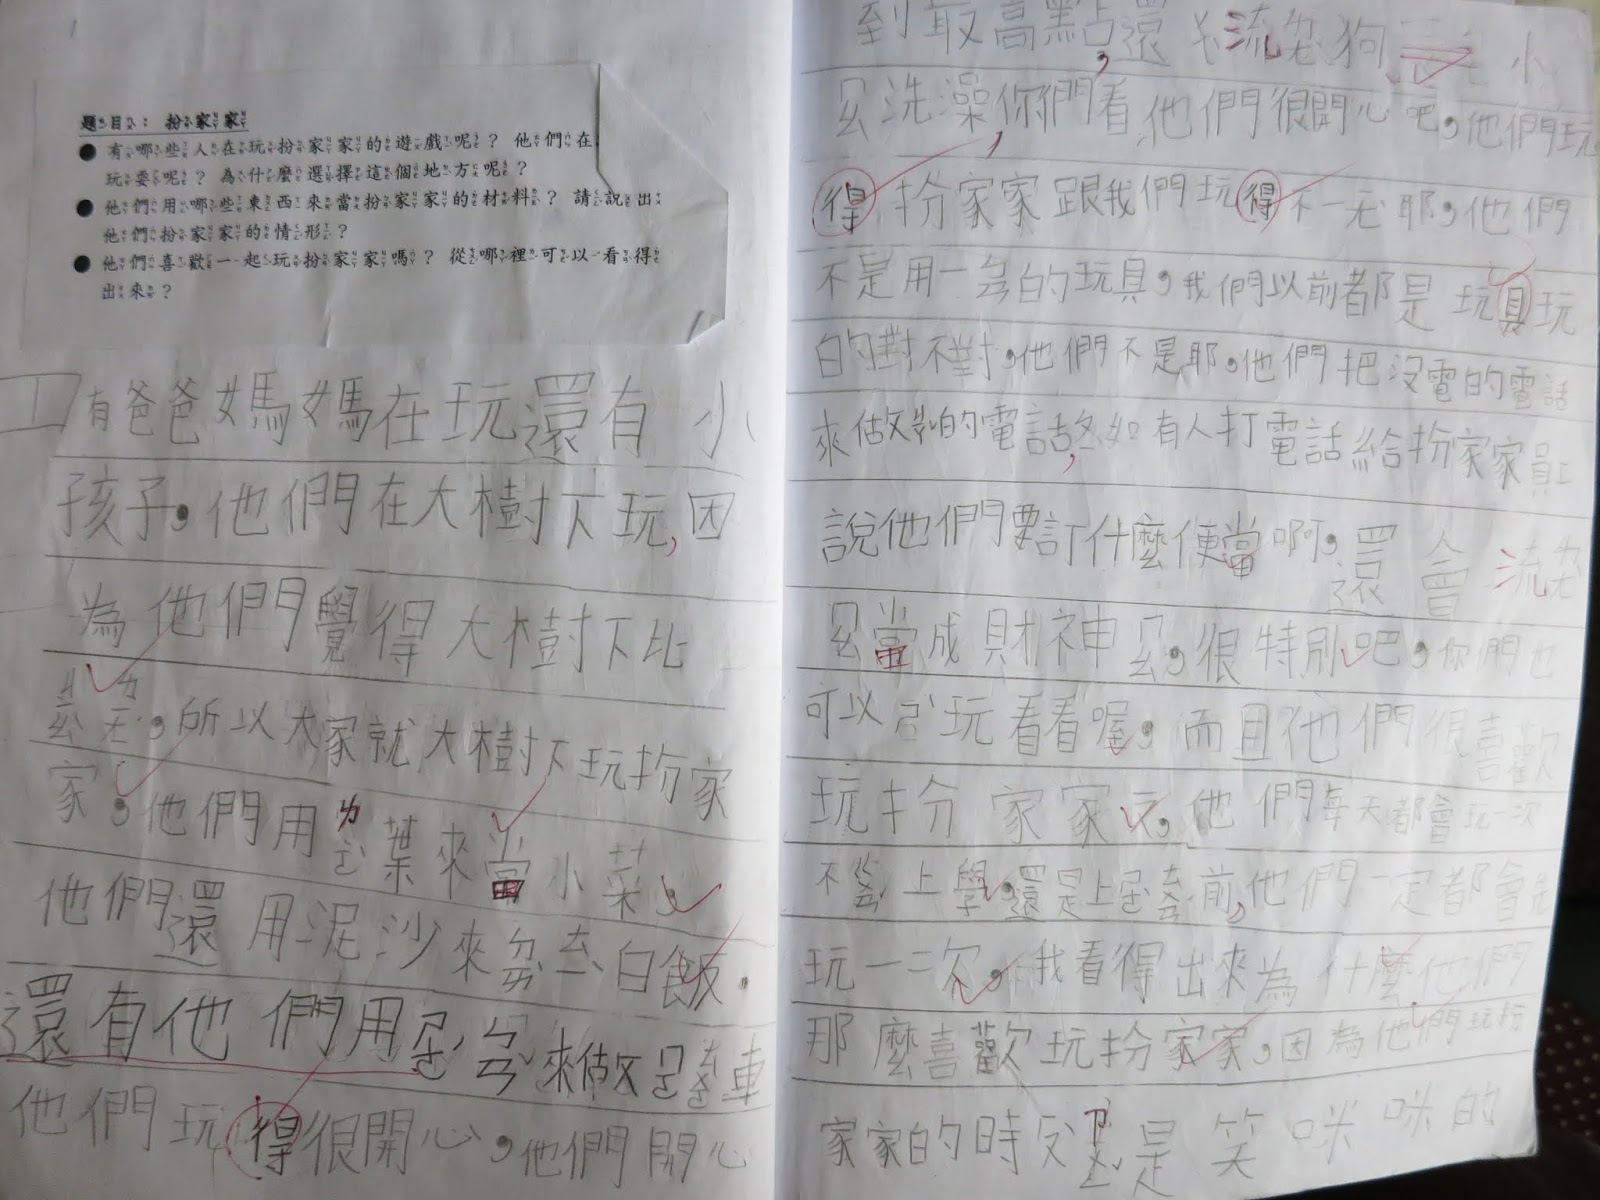 題目：扮家家
有哪些人在玩扮家家的遊戲呢？他們在
玩耍呢？為什麼選擇這個地方呢？
他們用哪些東西來當扮家家的材料？請說出
他們扮家家的情形？
他們喜歡一起玩扮家家嗎？從哪裡可以看得
出來？
有爸爸媽媽在玩還有小
孩子，他們在大樹下玩，因
為他們覺得大樹下比
所以大家就大樹下玩扮家
家，他們用ㄕㄨˋ葉來當小菜，
他們還用泥沙來ㄉㄤ 白飯．
還有他們用 來做 車
他們玩得很開心，他們開心
到最高點，還 流浪狗 小
ㄍㄡˇ洗澡，你們看他們很開心吧，他們玩
得扮家家跟我們玩得不一 耶，他們
不是用一 的玩具，我們以前都是玩具玩
的對不對，他們不是耶，他們把沒電的電話
來做 的電話，如有人打電話給扮家家員工
說他們要訂什麼便當啊，還會流
當成財神 ，很特別吧，你們也
可以 玩看看喔，而且他們很喜歡
玩扮家家 ，他們每天都會玩一次
不 上學，還是上 前，他們一定都會先
玩一二次，我看得出來為什麼他們
那麼喜歡玩扮家家，因為他們玩扮
家家的時 是笑咪咪的